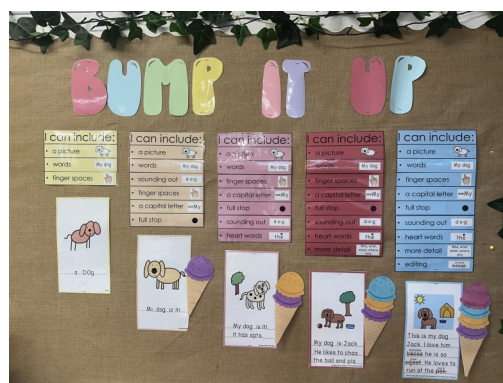 BUMP IT UP
I can include:
• a picture
• words My dog
• finger spaces
a Dog
I can include:
• a picture
• words My dog
• sounding out d-o-g
• finger spaces
• a capital letter
• full stop
I can include:
• a picture
• words My dog
• finger spaces
• a capital letter
• full stop
• sounding out d-o-g
• heart words the
My dog is it!
It has spts.
I can include:
• a picture
• words My dog
• finger spaces
• a capital letter
• full stop
• sounding out d-o-g
• heart words the
• more detail
My dog is Jack.
He likes to chas
the ball and pla.
I can include:
• a picture
• words My dog
• finger spaces
• a capital letter
• full stop
• sounding out d-o-g
• heart words the
• more detail
• editing
This is my dog
Jack. I love him
he is so
He loves to
run at the